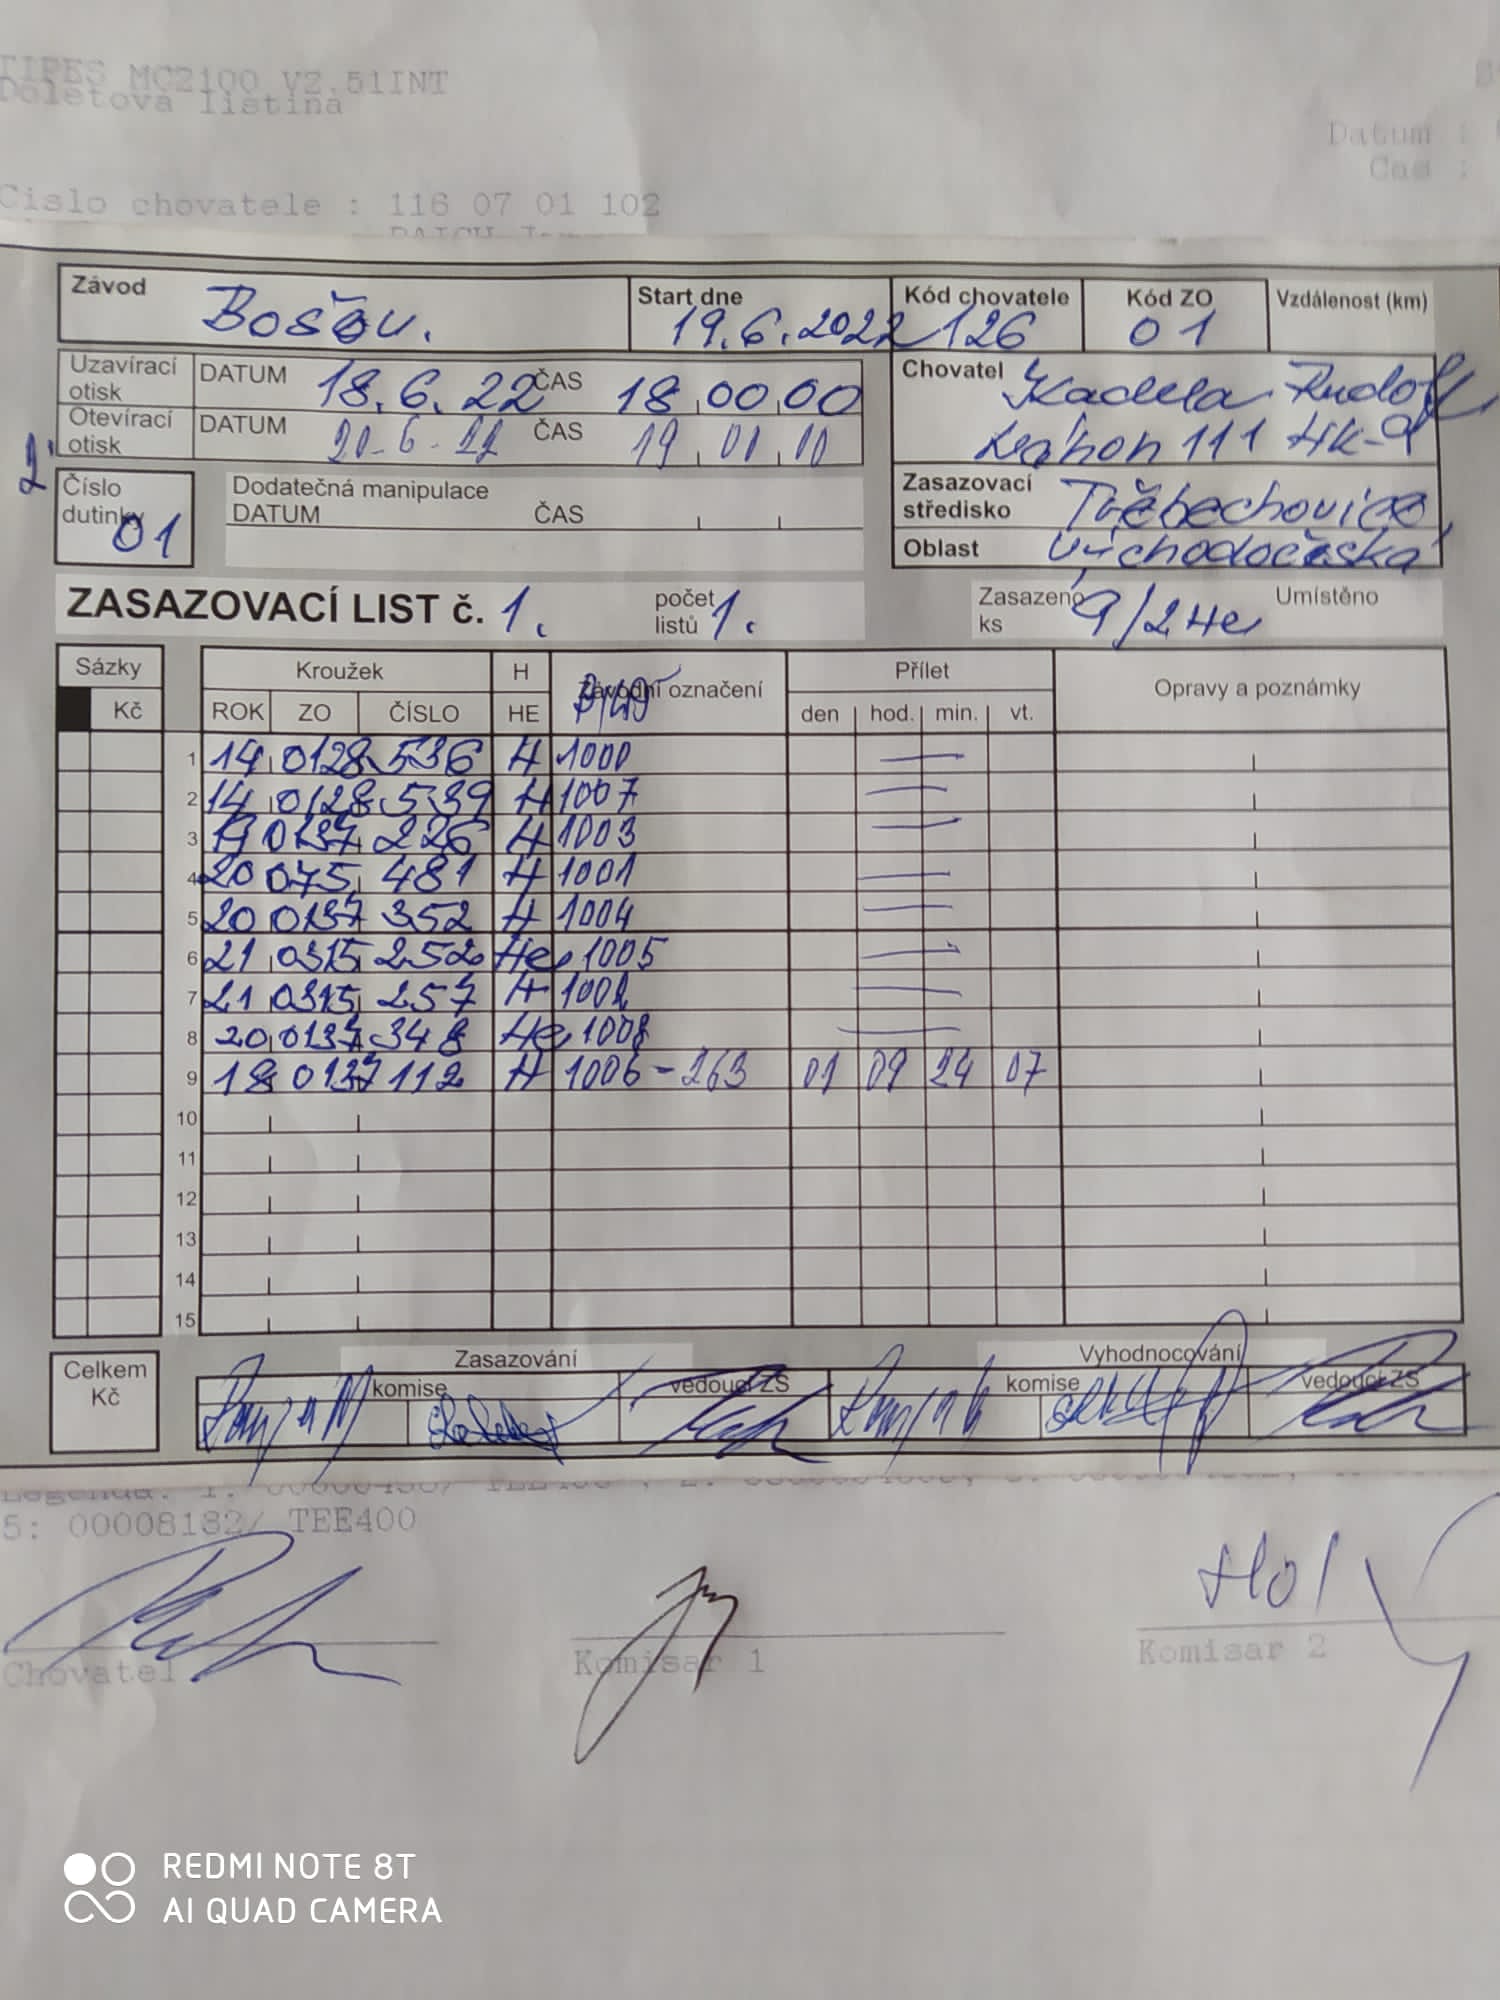 TIPES MC2100 V2.51INT
Doletova listina
Datum :
Cas :
Cislo chovatele : 116 07 01 102
Závod Bošov.
Start dne 19.6.2022
Kód chovatele 126
Kód ZO 01
Vzdálenost (km)
Uzavírací otisk DATUM 18.6.22 ČAS 18 00 00
Otevírací otisk DATUM 20-6-22 ČAS 19 01 10
Chovatel Kadela Rudolf
111 HK-9
2'
Číslo dutinky 01
Dodatečná manipulace
DATUM ČAS
Zasazovací středisko Třebechovice
Oblast Východočeská
ZASAZOVACÍ LIST č. 1.
počet listů 1.
Zasazeno ks 9/2He
Umístěno
Sázky
Kč
Kroužek H Závodní označení Přílet Opravy a poznámky
ROK ZO ČÍSLO HE den hod. min. vt.
1 14 0128 536 H 1000 —
2 14 0128 539 H 1007 —
3 19 0137 226 H 1003 —
4 20 075 481 H 1001 —
5 20 0137 352 H 1004 —
6 21 0315 252 He 1005 —
7 21 0315 257 H 1002 —
8 20 0137 348 He 1008 —
9 18 0137 112 H 1006 - 263 01 09 24 07
10
11
12
13
14
15
Celkem Kč
Zasazování
Vyhodnocování
komise vedoucí ZS komise vedoucí ZS
5: 00008182/ TEE400
Chovatel
Komisar 1
Komisar 2
REDMI NOTE 8T
AI QUAD CAMERA